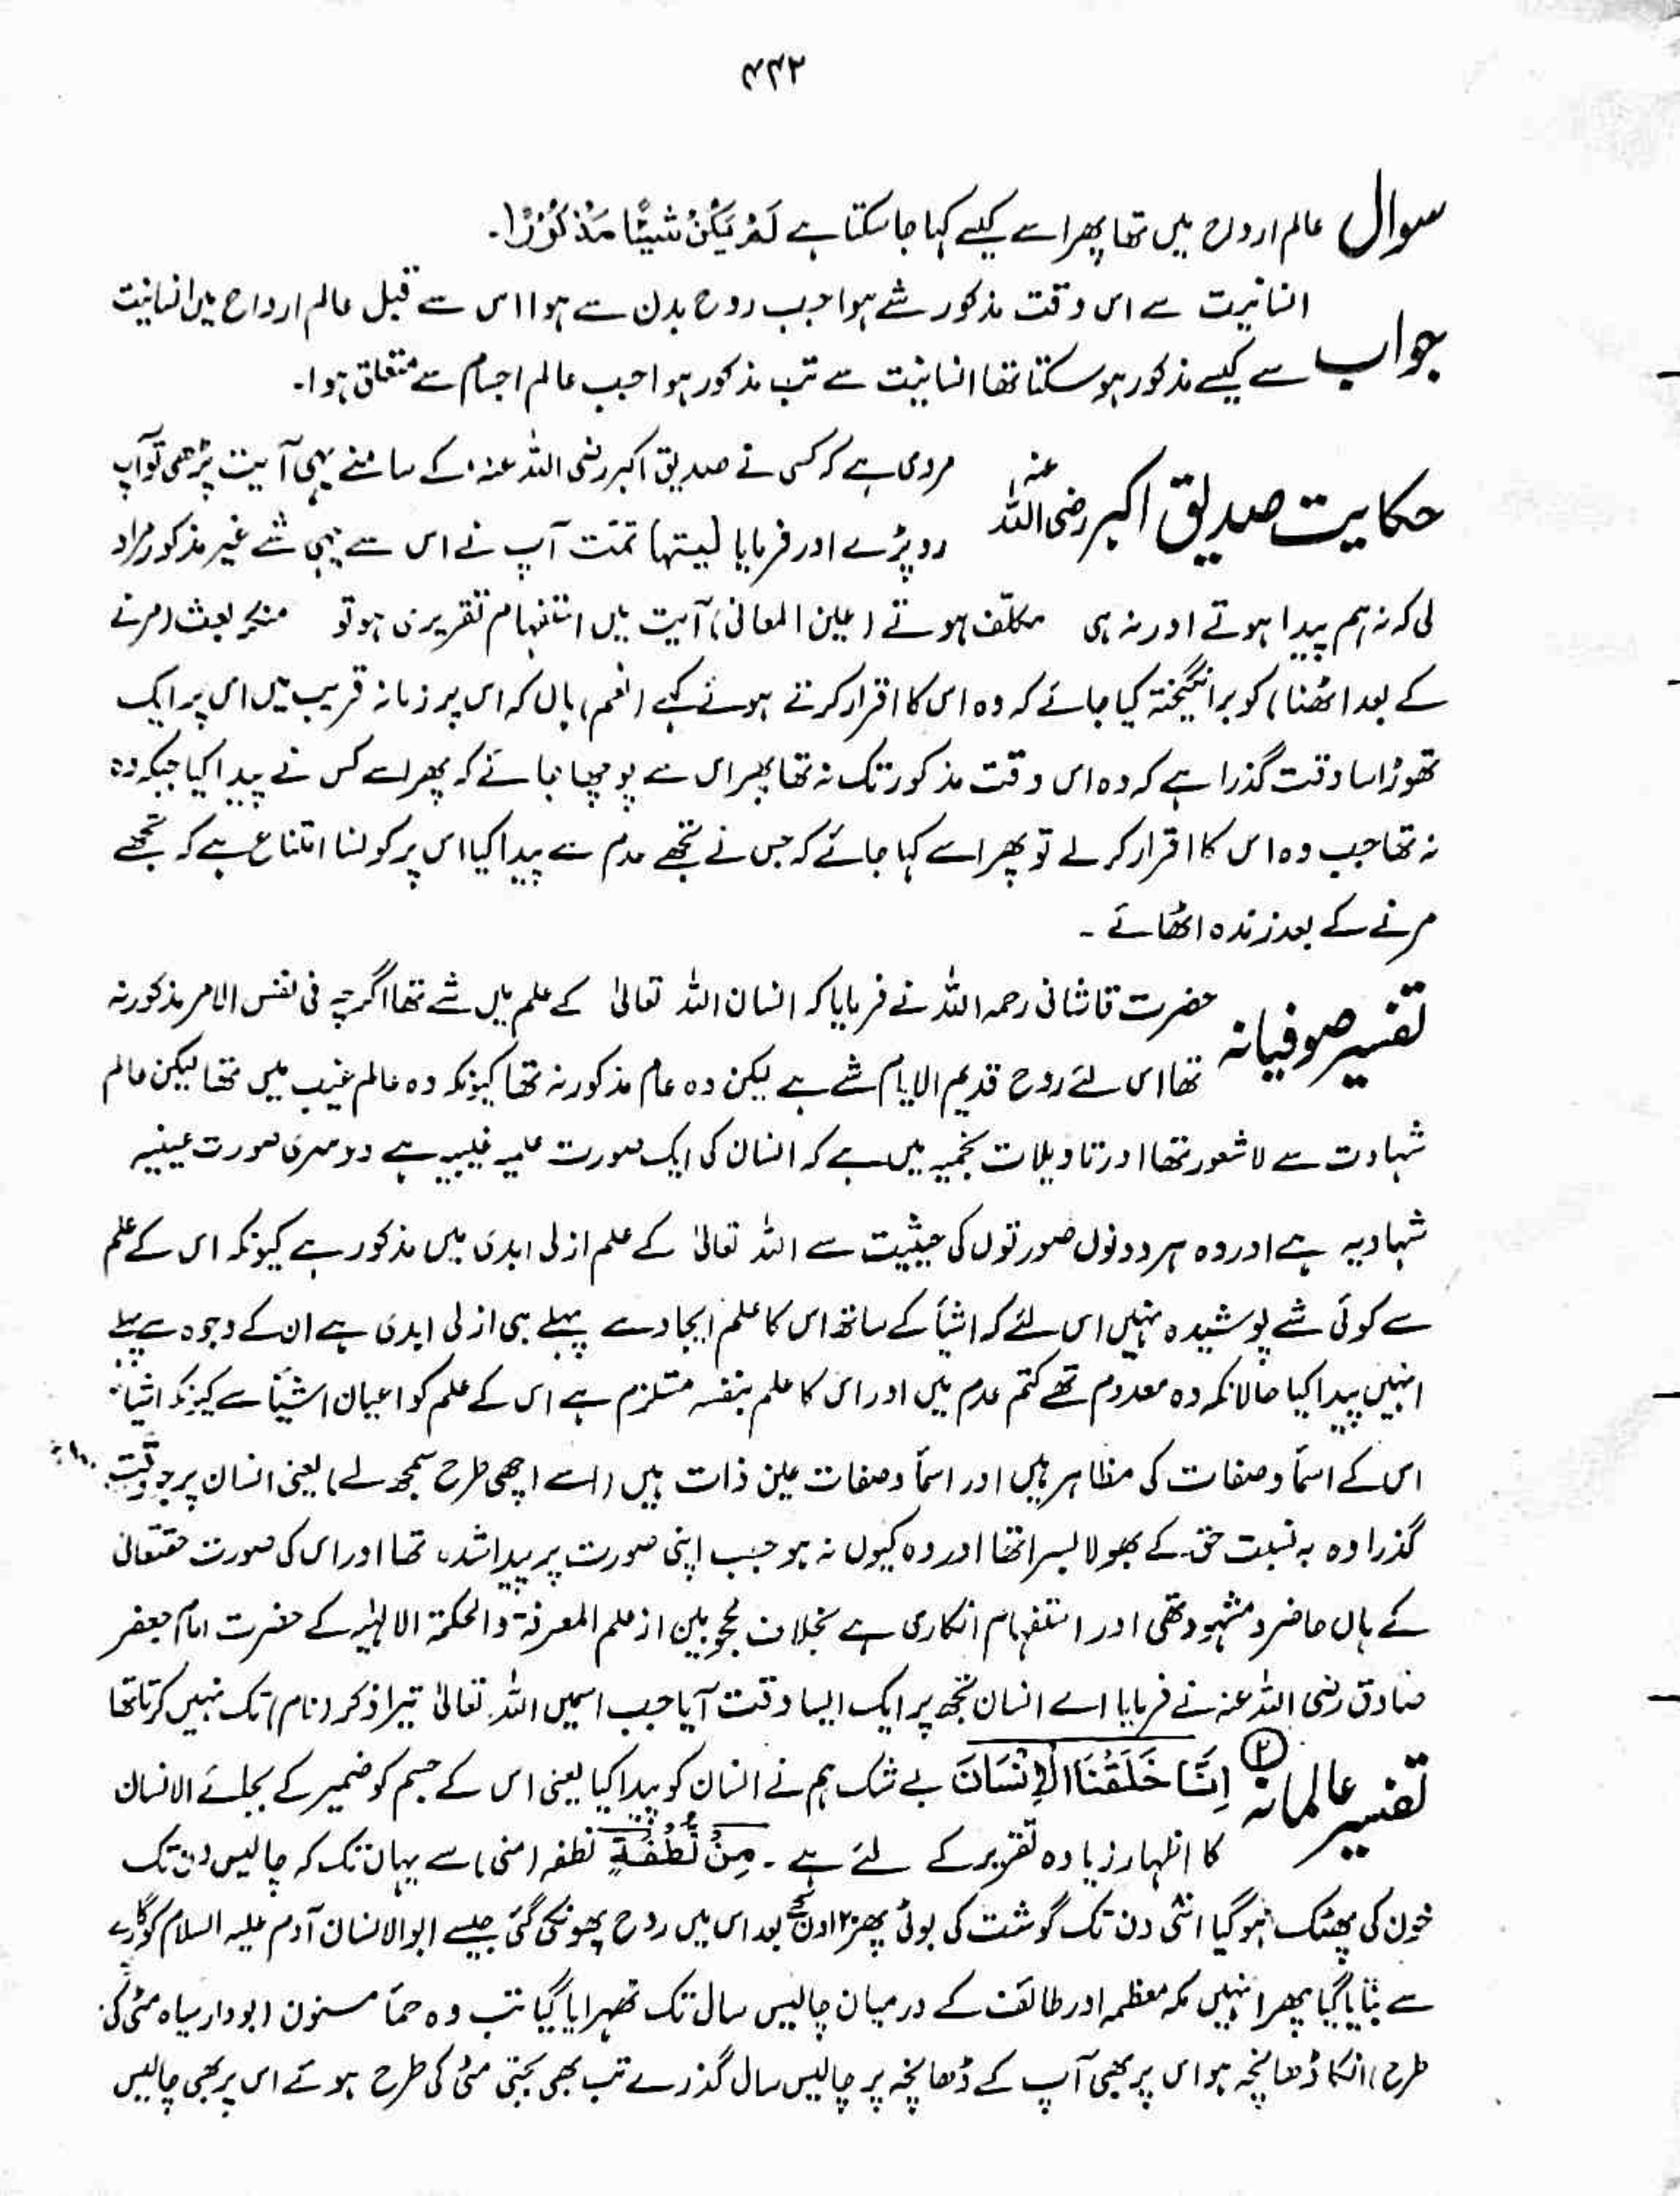 ۴۴۲
سوال عالم ارواح میں تھا پھر اسے کیسے کہا جا سکتا ہے لَمْ یَكُنْ شَیْئًا مَّذْكُوْرًا۔
انسانیت سے اس وقت مذکور شے ہوا جب روح بدن سے ہوا اس سے قبل عالم ارواح میں انسانیت
جواب سے کیسے مذکور ہو سکتا تھا انسانیت سے تب مذکور ہوا جب عالم اجسام سے متعلق ہوا۔
حکایت صدیق اکبر رضی اللہ عنہ مروی ہے کہ کسی نے صدیق اکبر رضی اللہ عنہ کے سامنے یہی آیت پڑھی تو آپ
رو پڑے اور فرمایا لیتہا تمت آپ نے اس سے یہی شے غیر مذکور مراد
لی کہ نہ ہم پیدا ہوتے اور نہ ہی مکلّف ہوتے (عین المعانی) آیت میں استفہام تقریری ہو تو منکر بعث (مرنے
کے بعد اٹھنا) کو برانگیختہ کیا جائے کہ وہ اس کا اقرار کرتے ہوئے کہے (نعم) ہاں کہ اس پر زمانہ قریب میں اس پر ایک
تھوڑا سا وقت گذرا ہے کہ وہ اس وقت مذکور تک نہ تھا پھر اس سے پوچھا جائے کہ پھر اسے کس نے پیدا کیا جبکہ وہ
نہ تھا جب وہ اس کا اقرار کر لے تو پھر اسے کہا جائے کہ جس نے تجھے عدم سے پیدا کیا اس پر کونسا امتناع ہے کہ تجھے
مرنے کے بعد زندہ اٹھائے ۔
تفسیر صوفیانہ حضرت قاشانی رحمہ اللہ نے فرمایا کہ انسان اللہ تعالیٰ کے علم میں شے تھا اگرچہ فی نفس الامر مذکور نہ
تھا اس لئے روح قدیم الایام شے ہے لیکن وہ عام مذکور نہ تھا کیونکہ وہ عالم غیب میں تھا لیکن عالم
شہادت سے لاشعور تھا اور تاویلات نجمیہ میں ہے کہ انسان کی ایک صورت علمیہ غیبیہ ہے دوسری صورت عینیہ
شہادیہ ہے اور وہ ہر دونوں صورتوں کی حیثیت سے اللہ تعالیٰ کے علم ازلی ابدی میں مذکور ہے کیونکہ اس کے علم
سے کوئی شے پوشیدہ نہیں اس لئے کہ اشیأ کے ساتھ اس کا علم ایجاد سے پہلے ہی ازلی ابدی ہے ان کے وجوہ سے پہلے
انہیں پیدا کیا حالانکہ وہ معدوم تھے کتم عدم میں اور اس کا علم بنفسہ مستلزم ہے اس کے علم کو اعیان اشیأ سے کیونکہ اشیأ
اس کے اسمأ و صفات کی مظاہر ہیں اور اسمأ و صفات عین ذات ہیں (اسے اچھی طرح سمجھ لے) یعنی انسان پر جو وقت
گذرا وہ بہ نسبت حق کے بھولا بسرا تھا اور وہ کیوں نہ ہو جب اپنی صورت پر پیدا شدہ تھا اور اس کی صورت حقتعالیٰ
کے ہاں حاضر و مشہود تھی اور استفہام انکاری ہے بخلاف محجوبین از علم المعرفۃ والحکمۃ الالٰہیہ کے حضرت امام جعفر
صادق رضی اللہ عنہ نے فرمایا اے انسان تجھ پر ایک ایسا وقت آیا جب اسمیں اللہ تعالیٰ تیرا ذکر (نام) تک نہیں کرتا تھا
تفسیر عالمانہ ② اِنَّا خَلَقْنَا الْاِنْسَانَ بے شک ہم نے انسان کو پیدا کیا یعنی اس کے جسم کو ضمیر کے بجائے الانسان
کا اظہار زیادہ تقریر کے لئے ہے ۔ مِنْ نُّطْفَةٍ نطفہ (منی) سے یہاں تک کہ چالیس دن تک
خون کی پھٹک ہو گیا اسّی دن تک گوشت کی بوٹی پھر ۱۲۰ دن کے بعد اس میں روح پھونکی گئی جیسے ابوالانسان آدم علیہ السلام کو گارے
سے بنایا گیا پھر انہیں مکہ معظمہ اور طائف کے درمیان چالیس سال تک ٹھہرایا گیا تب وہ حمأ مسنون (بودار سیاہ مٹی کی
طرح) انکا ڈھانچہ ہو اس پر بھی آپ کے ڈھانچہ پر چالیس سال گذرے تب بھی بجتی مٹی کی طرح ہوئے اس پر بھی چالیس